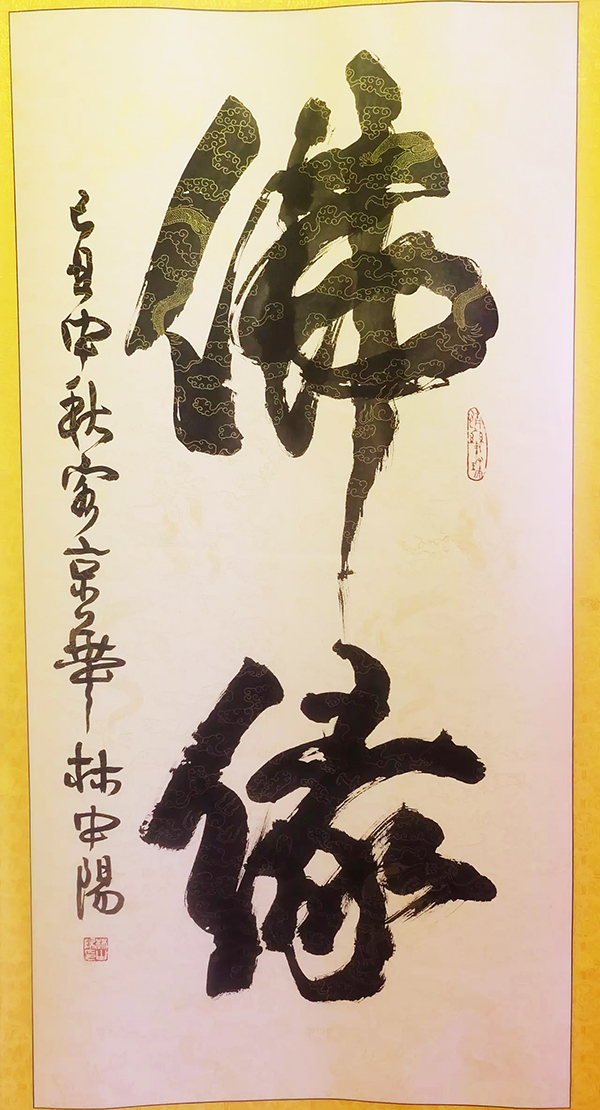 佛缘
己丑中秋客京華 林中陽